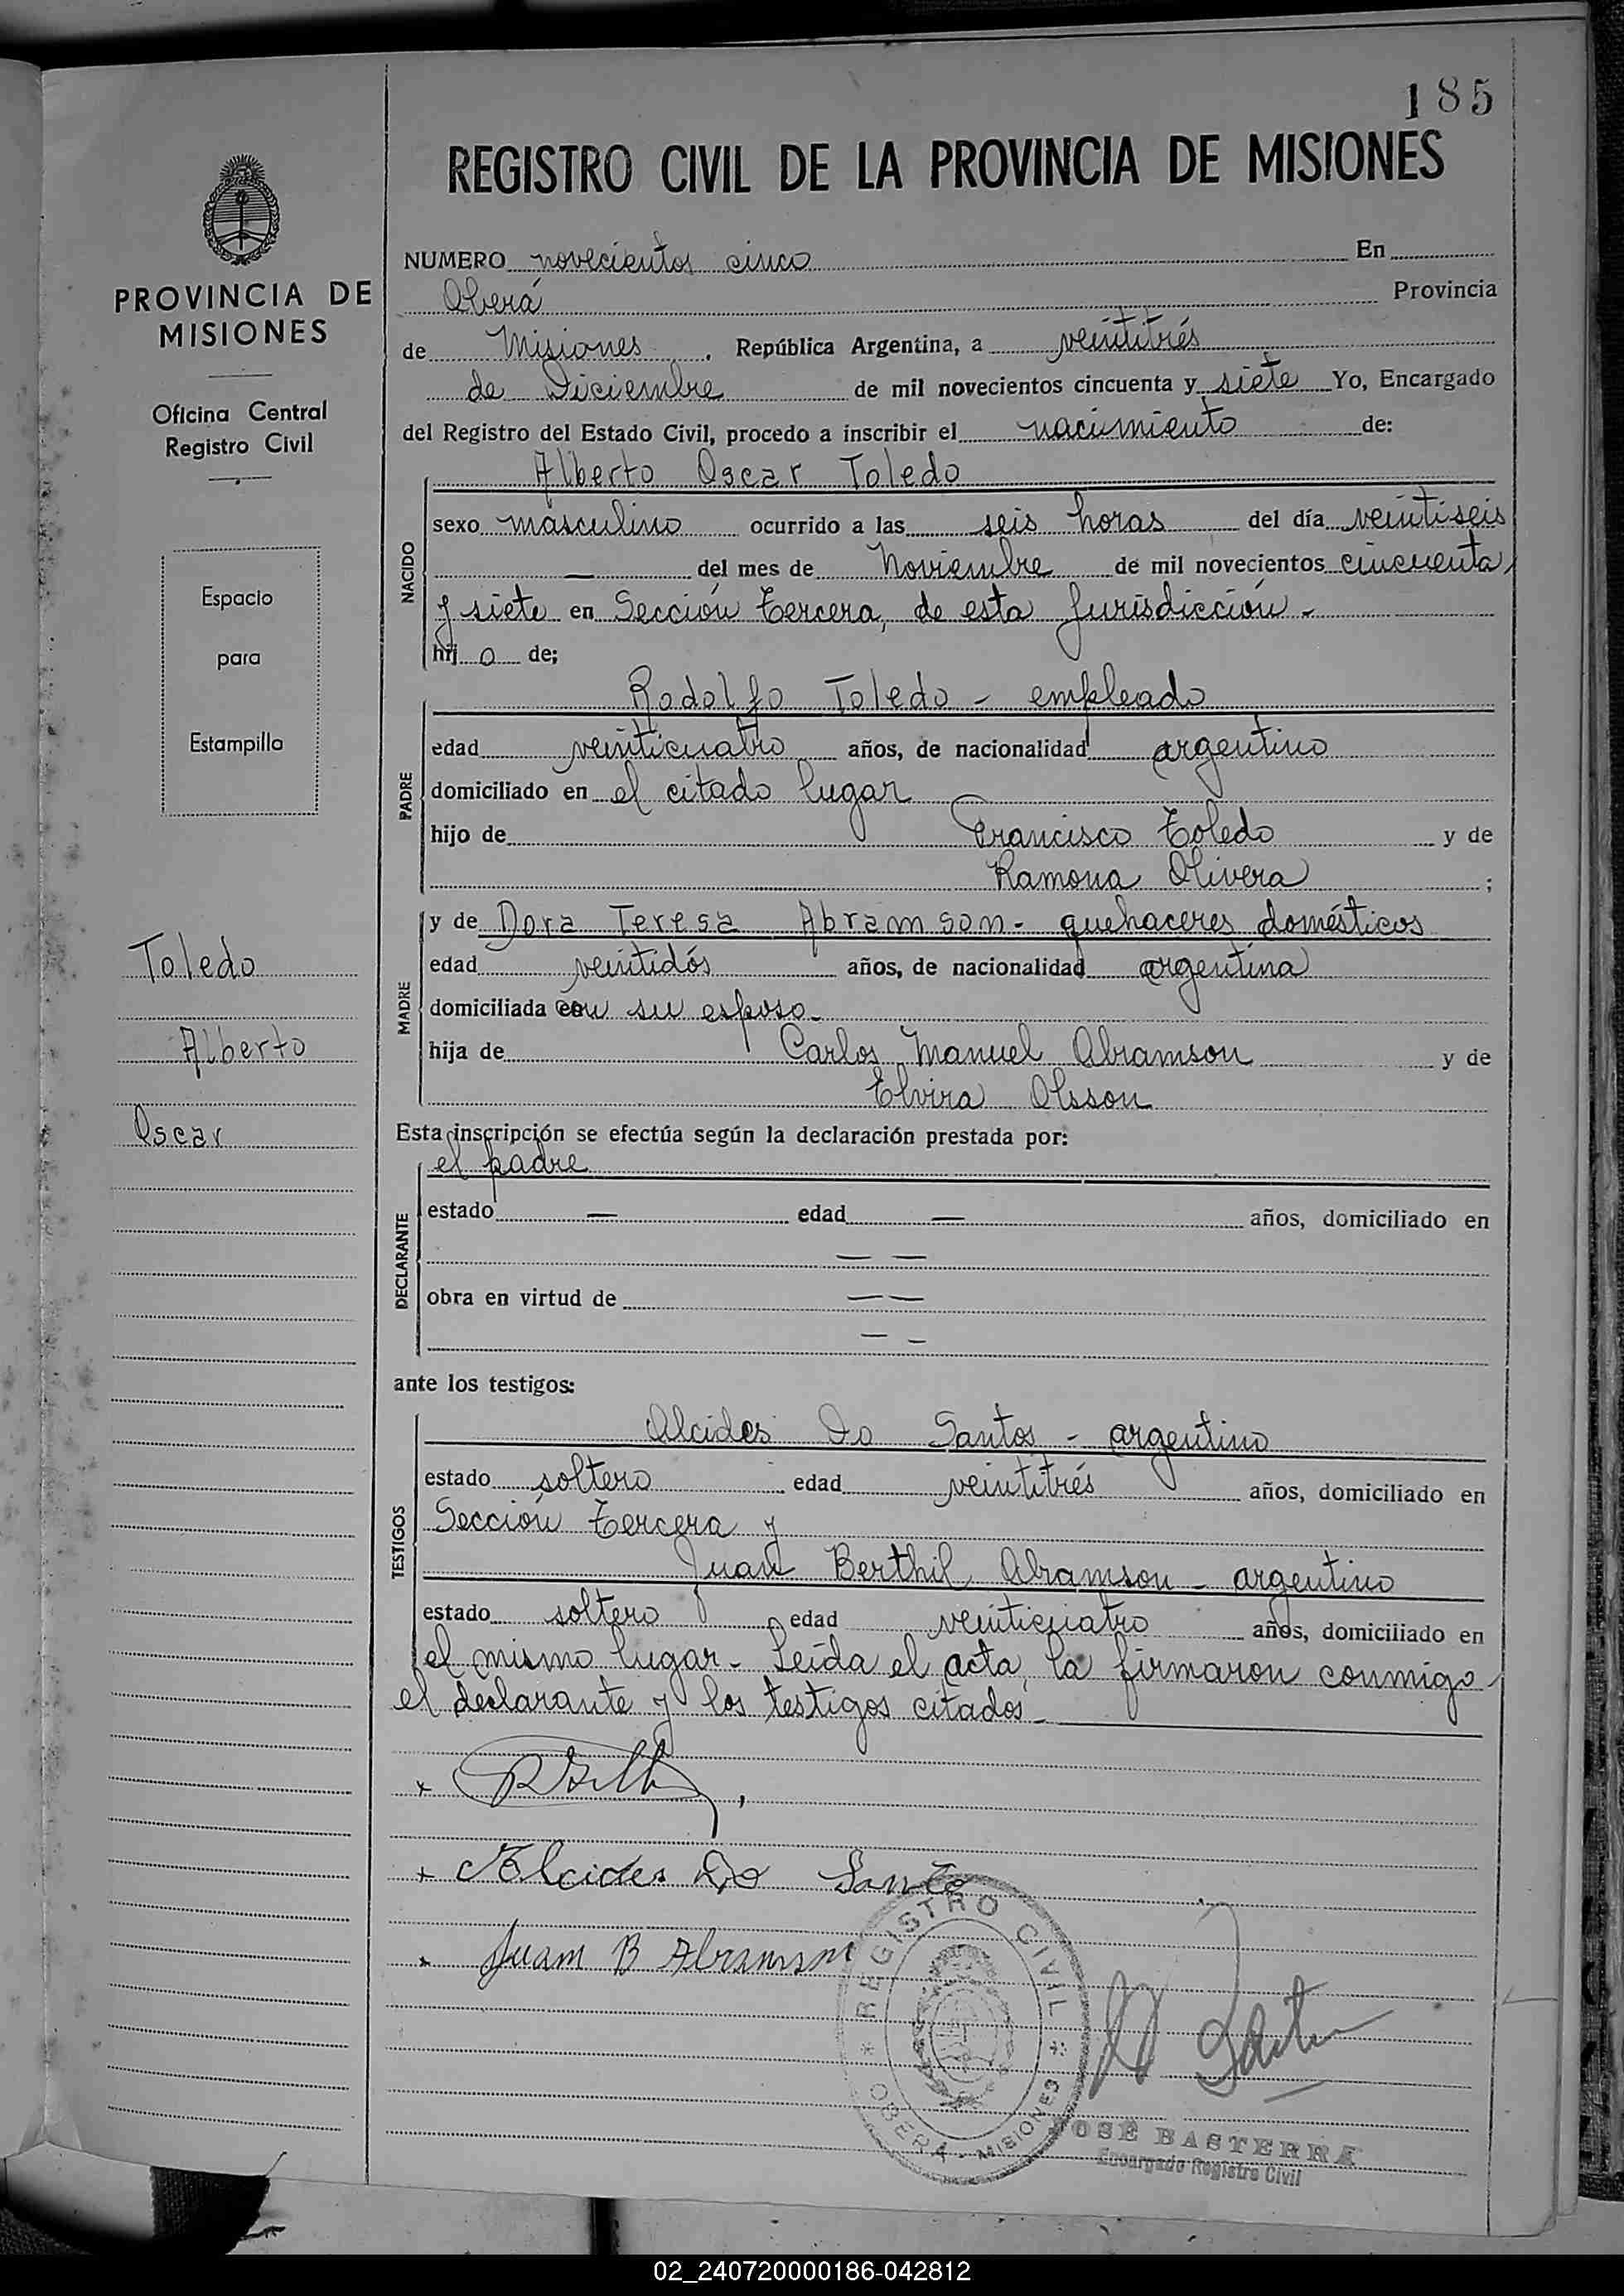 185
REGISTRO CIVIL DE LA PROVINCIA DE MISIONES
PROVINCIA DE
MISIONES
Oficina Central
Registro Civil
Espacio
para
Estampilla
Toledo
Alberto
Oscar
NUMERO novecientos cinco En
Oberá Provincia
de Misiones, República Argentina, a veintitrés
de Diciembre de mil novecientos cincuenta y siete Yo, Encargado
del Registro del Estado Civil, procedo a inscribir el nacimiento de:
Alberto Oscar Toledo
NACIDO
sexo masculino ocurrido a las seis horas del día veintiseis
— del mes de Noviembre de mil novecientos cincuenta
y siete en Sección Tercera, de esta Jurisdicción.-
hij o de;
Rodolfo Toledo - empleado
PADRE
edad veinticuatro años, de nacionalidad argentino
domiciliado en el citado lugar
hijo de Francisco Toledo y de
Ramona Olivera ;
y de Dora Teresa Abramson - quehaceres domésticos
MADRE
edad veintidós años, de nacionalidad argentina
domiciliada con su esposo-
hija de Carlos Manuel Abramson y de
Elvira Olsson
Esta inscripción se efectúa según la declaración prestada por:
el padre
DECLARANTE
estado — edad — años, domiciliado en
— —
obra en virtud de — —
— -
ante los testigos:
Alcides Do Santos - argentino
TESTIGOS
estado soltero edad veintitrés años, domiciliado en
Sección Tercera y
Juan Berthil Abramson - argentino
estado soltero edad veinticuatro años, domiciliado en
el mismo lugar- Leída el acta, la firmaron conmigo
el declarante y los testigos citados-
x
x Alcides Do Santo
x Juan B Abramson
REGISTRO CIVIL
OBERA - MISIONES
JOSÉ BASTERRA
Encargado Registro Civil
02_240720000186-042812